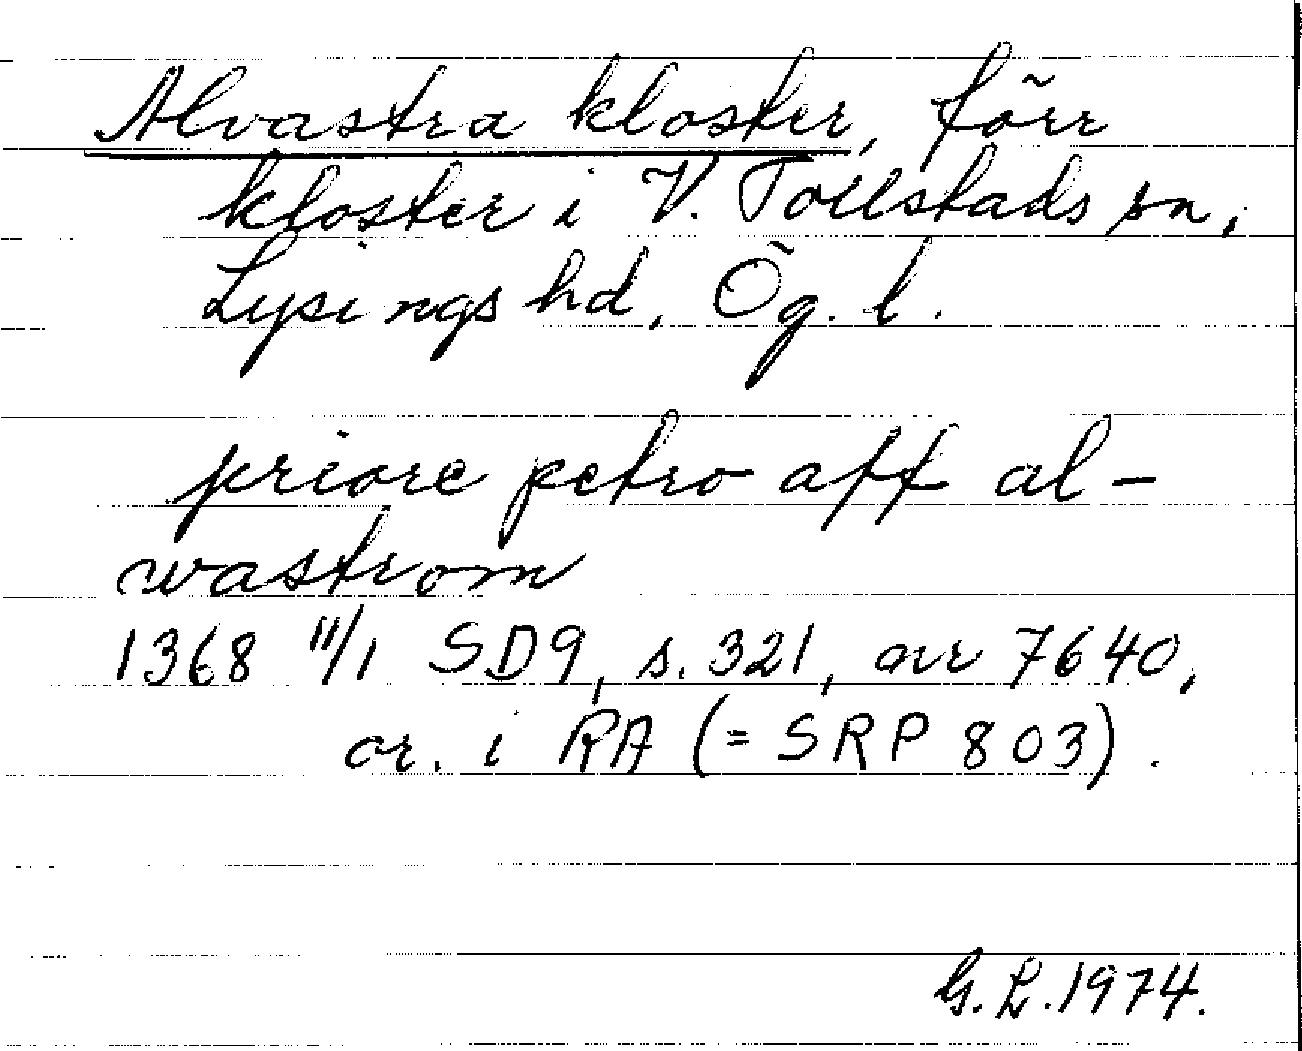 Alvastra kloster, förr
kloster i V. Tollstads sn,
Lysings hd, Ög. l.
priore petro aff al-
wastrom
1368 11/1 SD9, s. 321, nr 7640,
or. i RA (= SRP 803).
G. L. 1974.